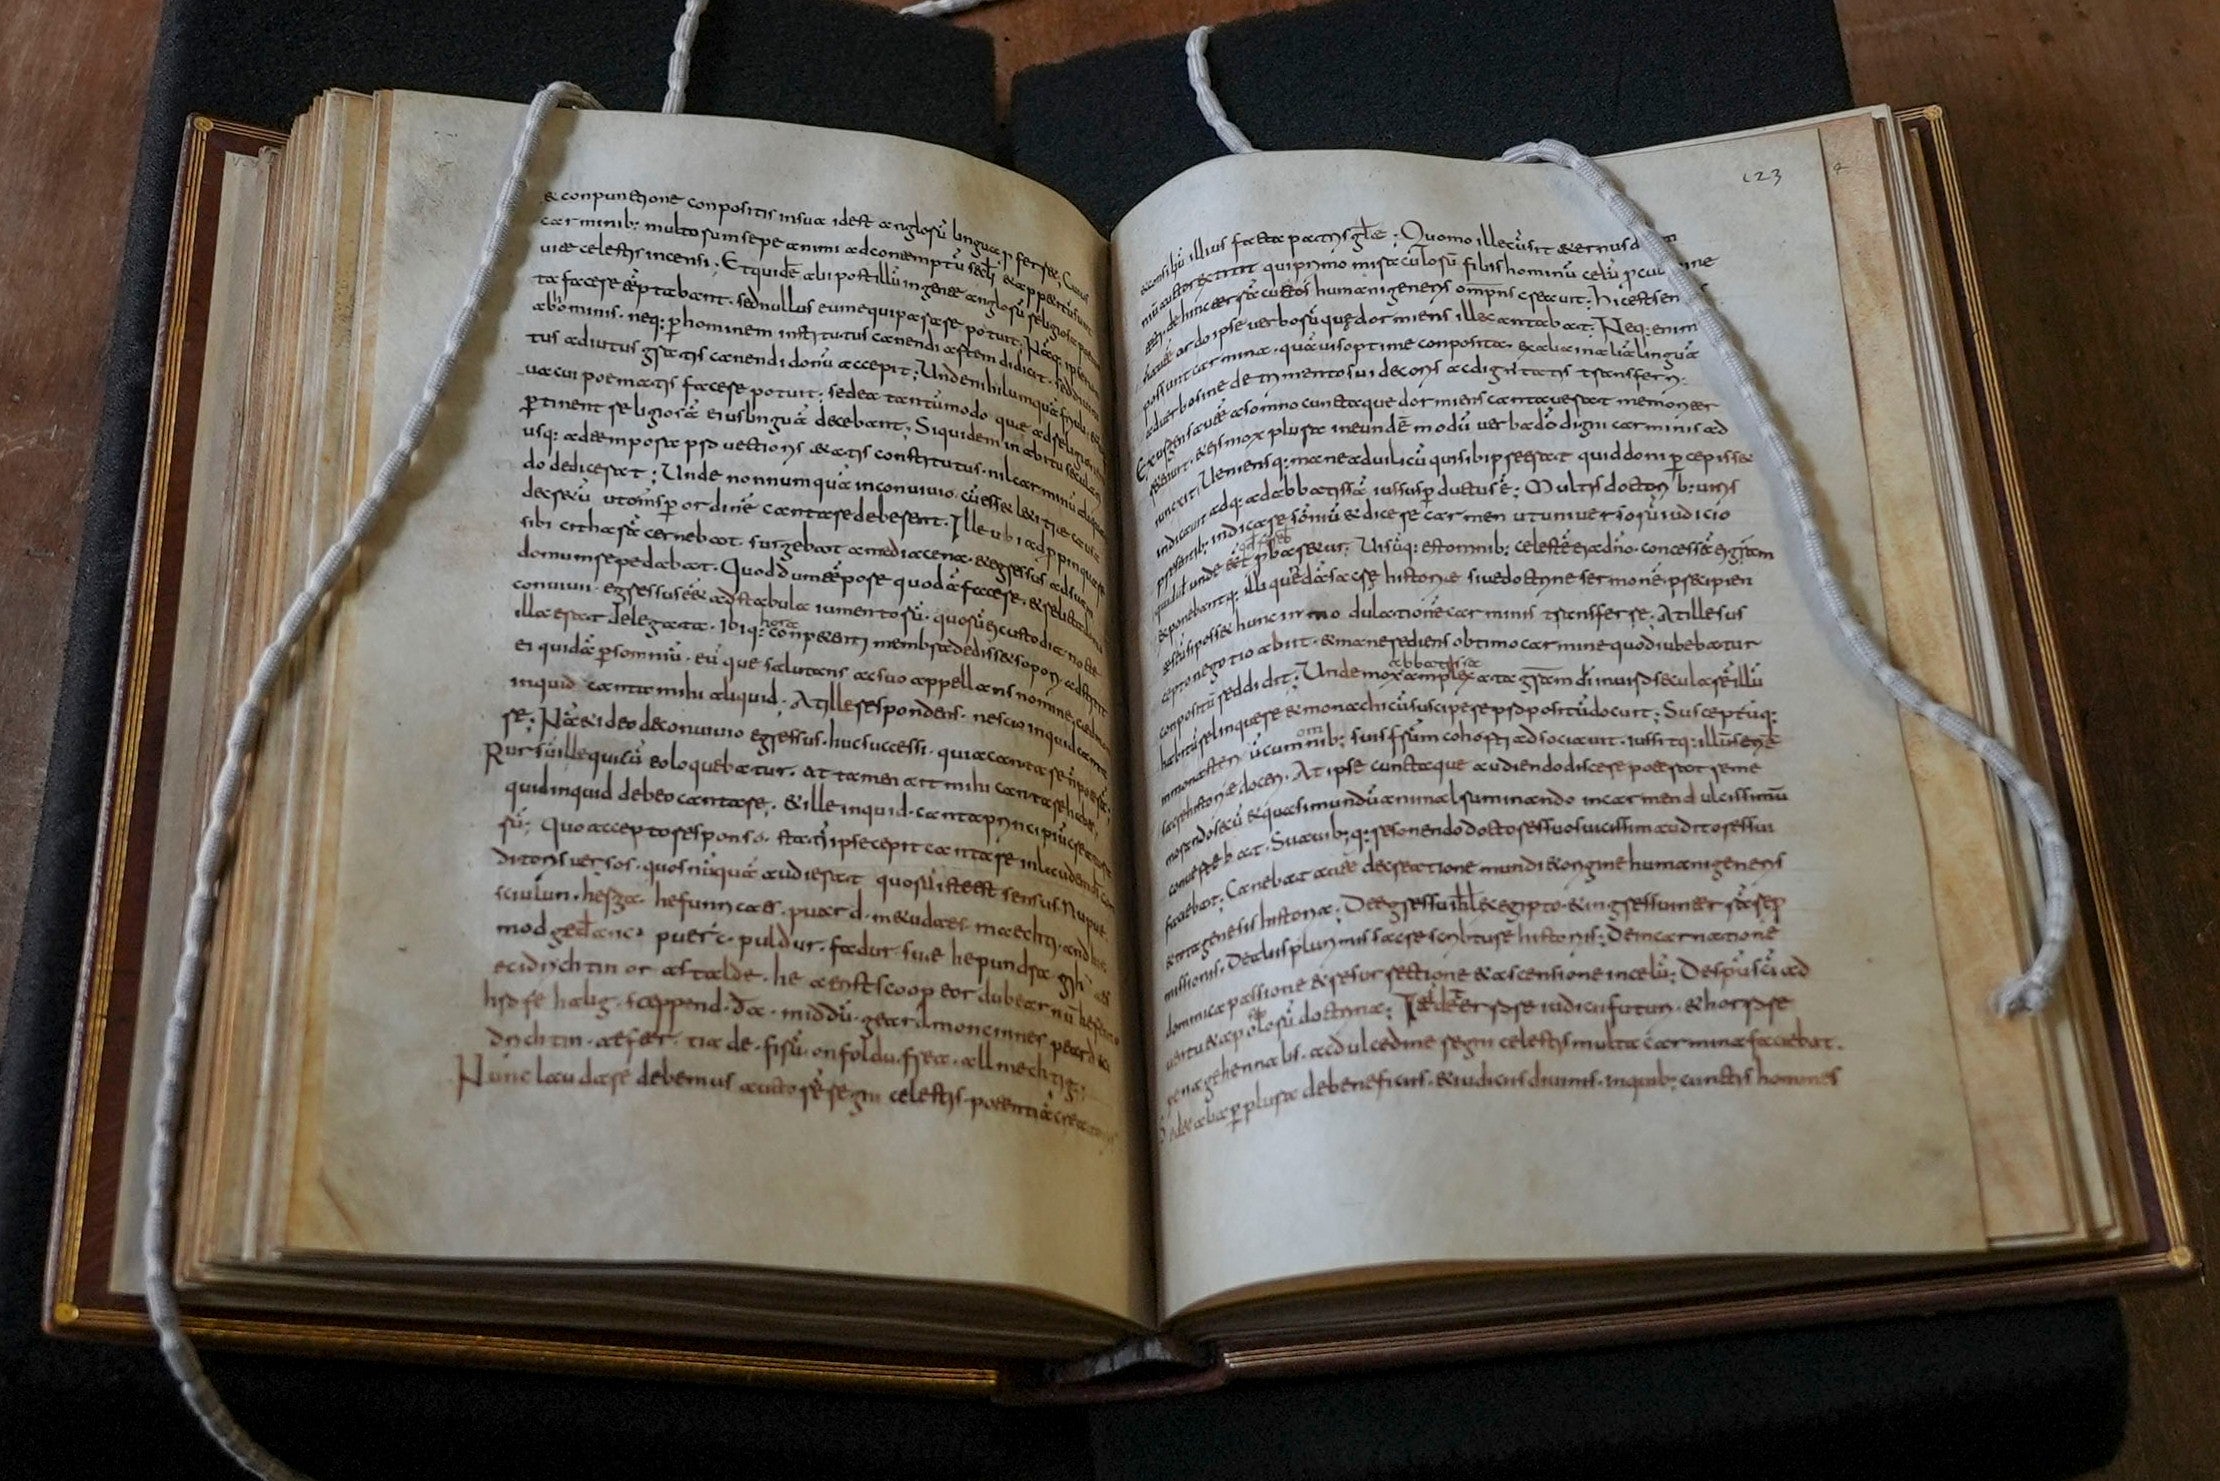 & conpunctione conpositis in sua id est anglosũ lingua p ferr&. Cuius
carminib: multosum sepe animi ad contemptũ sẽcli & app&itũ sunt
uitae celestis incensi; Et quidẽ alii post illũ in gente anglosũ religiosa poema
ta facere tẽptabant. sed nullus eum equiparare potuit. Nã
ab hominis. neq: p hominem institutus canendi artem didicit. sed diuini
tus adiutus gratis canendi donũ accepit; Unde nihil umquã friuoli &
uacui poematis facere potuit; sed ea tantũmodo quę ad religionẽ
ptinent religiosã eius linguã decebant; Siquidem in habitu seculari
usq: ad tẽmpora prouectioris &atis constitutus. nil carminũ aliquan
do dedicerat; Unde nonnumquã in conuiuio. cũ ess& l&itiae causa
decr&ũ ut oms p ordinẽ cantare deberent. Ille ubi adppinquare
sibi citharã cernebat. surgebat a media cena. & egressus ad suam
domum repedabat. Quod dum tẽpore quodã facere. & relicta domu
conuiuii. egressus eẽt ad stabula iumentosũ. quosũ ei custodia nocte
illa erat delegata. Ibiq: hora conpetenti membra dedisset sopori. adstitit
ei quidã p somniũ. eũque salutans ac suo appellans nomine; caedmon
inquid canta mihi aliquid; At ille respondens. nescio inquid canta
re; Nã & ideo de conuiuio egressus. huc successi. quia cantare ñ poterã;
Rursũ ille qui cũ eo loquebatur. at tamen ait mihi cantare habes;
quid inquid debeo cantare; & ille inquid. canta principiũ creatura
rũ; Quo accepto responso. statĩ ipse cepit cantare in laudem dĩ con
ditoris uersos. quos nũquã audierat quosũ iste est sensus. Nu pue
sciulun. herga. hefunricaes. puard. metudaes. maechti. and his
mod gedanc. puerc. puldur. fadur. sue he pundra gih
eci drichtin or astalde. he aerist scoop eordu bearnũ hefen to
hrofe halig. sceppend. da. middũ. geard. moncinnes peard eci
drichtin. aefter. tiade. firũ. on foldu. frea. allmechtig;
Nunc laudare debemus auctorẽ regni celestis. potentiã creatoris
123
& consiliũ illius facta patris glae; Quomo ille cũ sit &ernus ds
niũ auctor extitit qui primo miraculosũ filiis hominũ celũ p culmine
tecti. dehinc terrã custos humani generis omnps creauit; Hic est sen
haut ordo ipse uerbosũ quę dormiens ille cantabat; Neq: enim
possunt carmina. quãuis optime conposita. ex alia in aliã linguã
ad uerbo sine detrimento sui decoris ac dignitatis transferri;
Exurgens autẽ a somno cuncta que dormiens cantauerat memoriter
r&enuit. & eis mox plura in eundẽ modũ uerba dõ digni carminis ad
iunexit; Ueniensq: mane ad uilicũ qui sibi preerat quid doni p cepisset
indicauit. adq: ad abbatissã iussus p ductus ẽ; Multis doctori b: uiris
presentib: indicare somniũ & dicere carmen ut uniuersosũ iudicio
quid ul unde eẽt pbar&ur; Uisũq: est omnib: celestẽ ei a dño. concessã ẽ grãm
exponebantq: illi quẽdã sacrę historiae siue doctrine sermonẽ. precipien
tes si poss& hunc in modulationẽ carminis transferre; At ille sus
cepto negotio abiit. & mane rediens obtimo carmine quod iubebatur
conpositũ reddidit; Unde mox abbatissa amplexata grãm dĩ in uiro seculasẽ illũ
habitũ relinquere & monachicũ suscipere propositũ docuit; Susceptũq:
in monasteriũ cum omnib: suis frũm cohorti adsociauit. iussitq: illũ seriẽ
sacrę historiae doceri. At ipse cuncta que audiendo discere poterat se me
morando secũ & quasi mundũ animal ruminando in carmen dulcissimũ
conuertebat. Suauib:q: resonendo doctores suos uicissim auditores sui
faciebat; Canebat autẽ de creatione mundi & origine humani generis
& tota genesis historia; De egressu isrl ex egipto & ingressu in terrã rep
missionis. De aliis plurimis sacre scripturę historiis; De incarnatione
dominica passione & resurrectione & ascensione in celũ; De sps sci ad
uentu & apostolosũ doctrina; Itẽ de terrore iudicii futuri. & horrore
penę gehennalis. ac dulcedine regni celestis multa carmina faciebat.
Sed & alia p plura de beneficiis. & iudiciis diuinis. in quib: cunctis homines